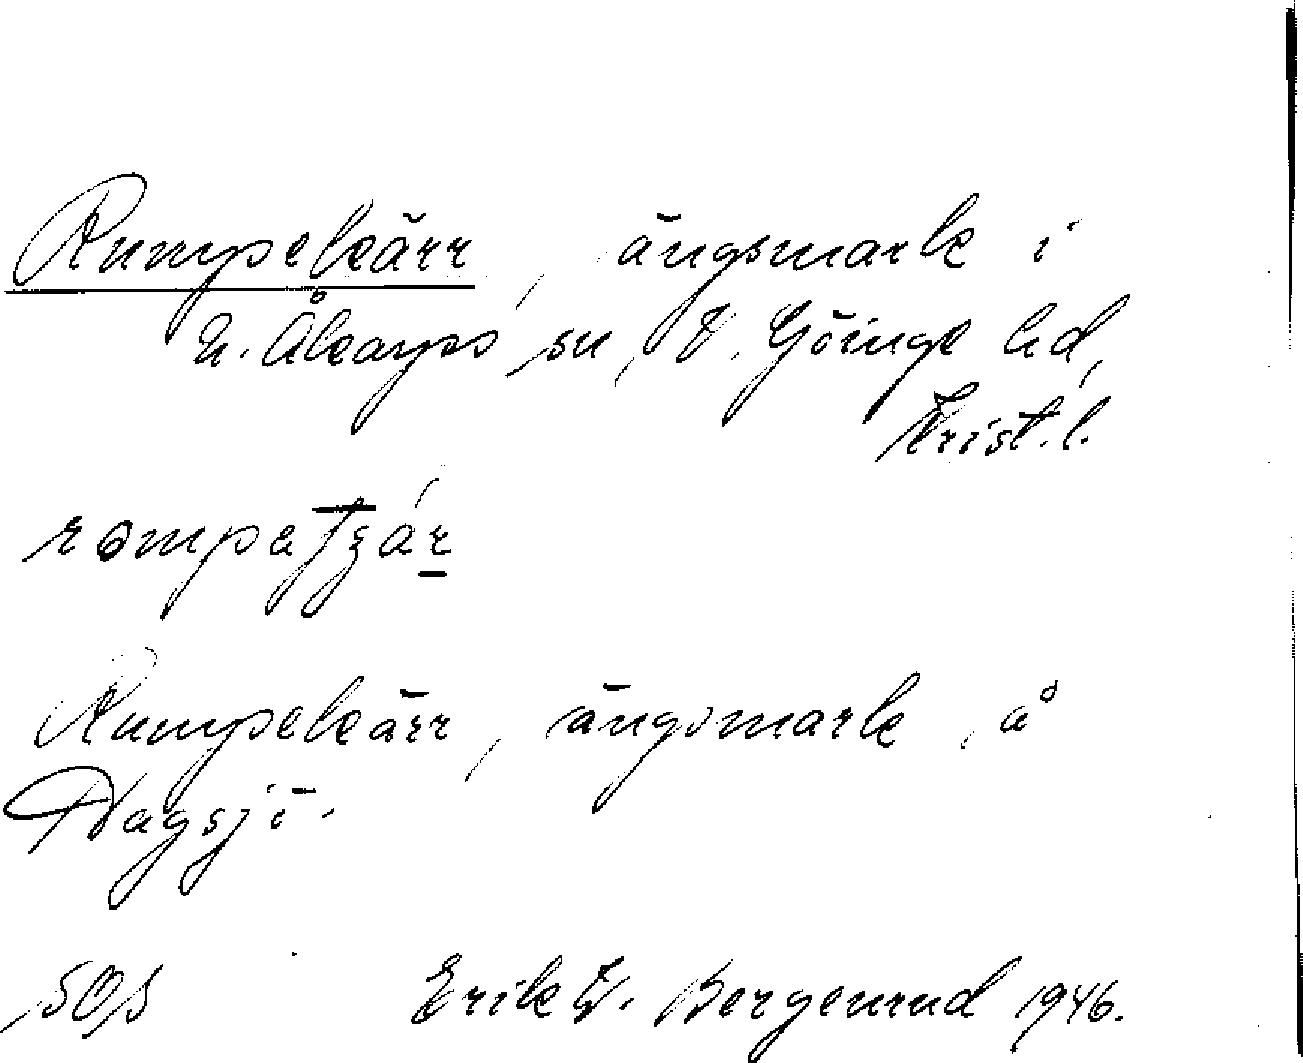 Rumpekärr, ängsmark i
N. Åkarps sn, V. Göinge hd,
Krist. l.
Rumpekärr, ängsmark, å
Hagsjö.
Erik W. Bergenrud 1946.